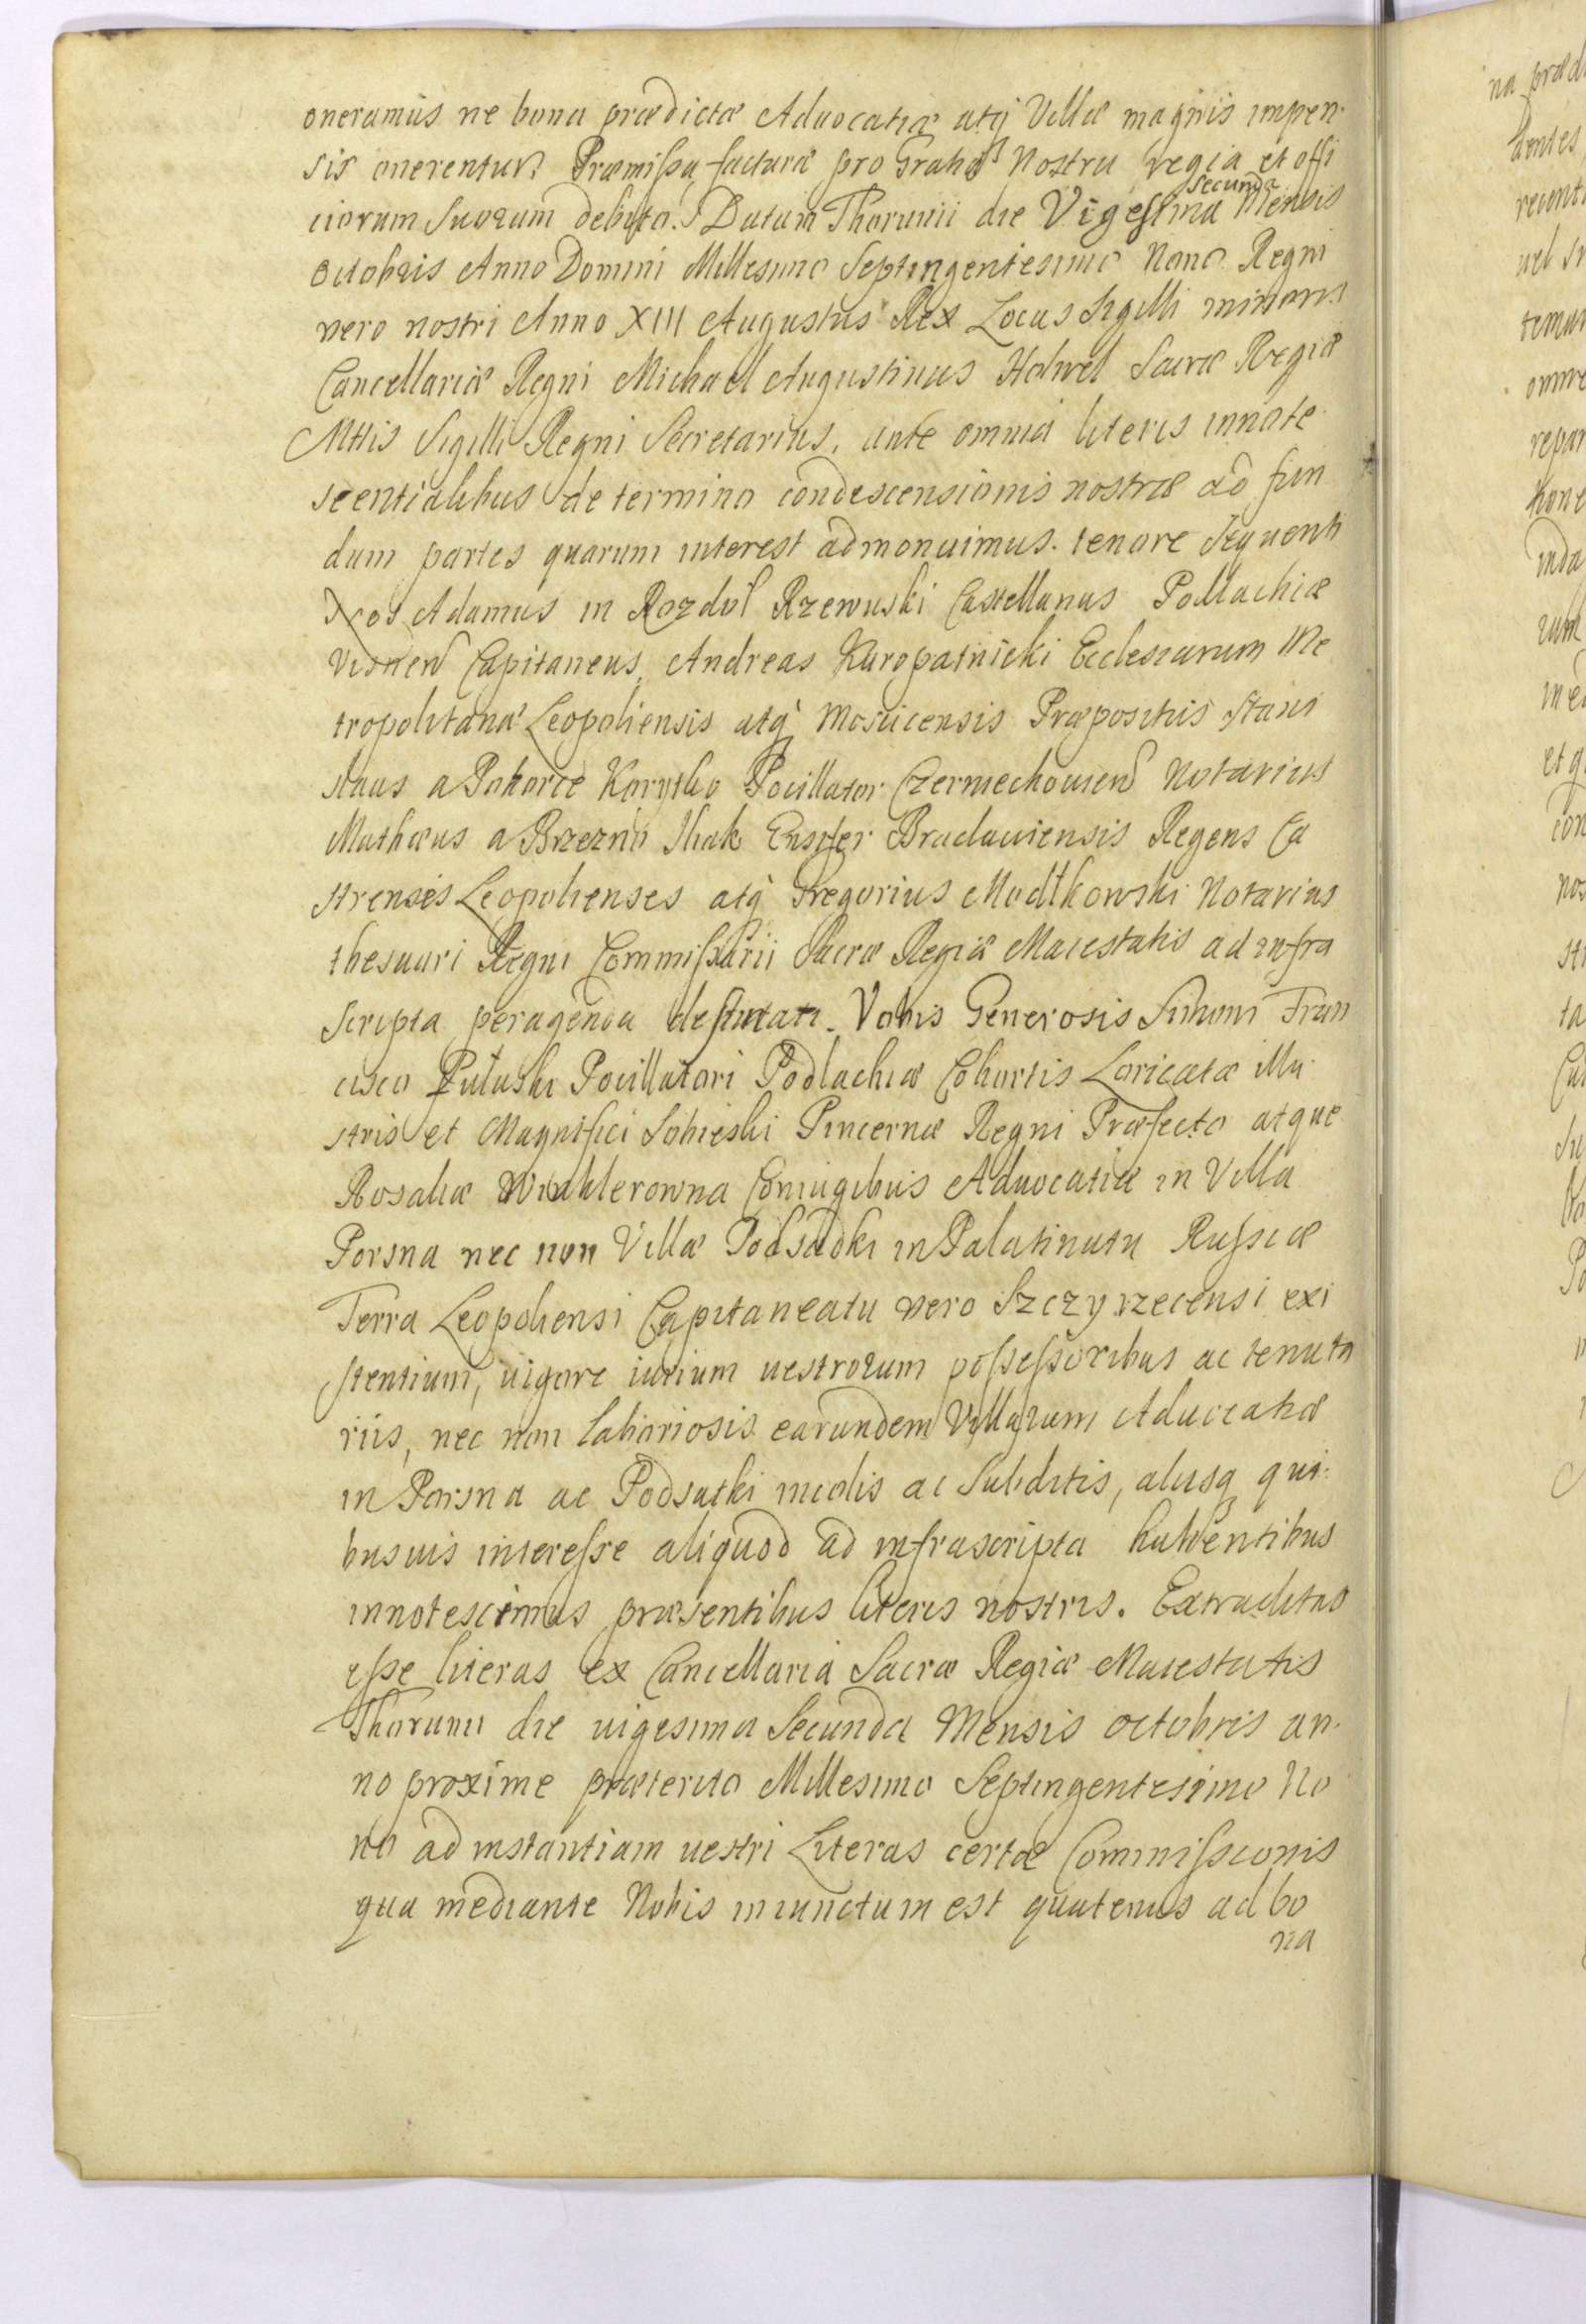 oneramus ne bona prædictæ Advocatiæ atq Villæ magnis impen-
sis onerentur. Præmissa facturæ pro Gratia Nostra regia et offi
ciorum Suorum debito. Datum Thorunii die Vigesima secunda Mensis
Octobris Anno Domini Millesimo Septingentesimo Nono Regni
vero nostri Anno XIII Augustus Rex Locus Sigilli minoris
Cancellariæ Regni Michael Augustinus Sacræ Regiæ
Mttis Sigilli Regni Secretarius. ante omnia literis innote
scentialibus de termino condescensionis nostræ ad fun
dum partes quarum interest admonuimus. tenore Sequenti
Nos Adamus in Rozdol Rzewuski Castellanus Podlachiæ
Visnen Capitaneus, Andreas Kuropatnicki Ecclesiarum Me
tropolitanæ Leopoliensis atq Moscicensis Præpositus Stani
slaus a Pohorce Korytko Pocillator Czerniechouien Notarius
Mathæus a Brzezno Ilnak Ensifer Braclaviensis Regens Ca
strensis Leopolienses atq Gregorius Modlkowski Notarius
thesauri Regni Commissarii Sacræ Regiæ Maiestatis ad infra
scripta peragenda destinati. Vobis Generosis Simoni Fran
cisco Pułaski Pocillatori Podlachiæ Cohortis Loricatæ illu
stris et Magnifici Sobieski Pincernæ Regni Præfecto atque
Rosaliæ Winklerowna Coniugibus Advocatiæ in Villa
Porsna nec non Villæ Podsadki in Palatinatu Russiæ
Terra Leopoliensi Capitaneatu vero Szczyrzecensi exi
stentium, uigore iurium uestrorum possessoribus ac tenuta
riis, nec non laboriosis earundem Villarum Aduocatiæ
in Porsna ac Podsatki incolis ac Subditis, aliisq qui-
busuis interesse aliquod ad infrascripta habentibus
innotescimus præsentibus literis nostris. Extraditas
esse literas ex Cancellaria Sacræ Regiæ Maiestatis
Thorunii die uigesima Secunda Mensis octobris an-
no proxime præterito Millesimo Septingentesimo No
no ad instantiam uestri Literas certæ Commissionis
qua mediante Nobis iniunctum est quatenus ad bo
na